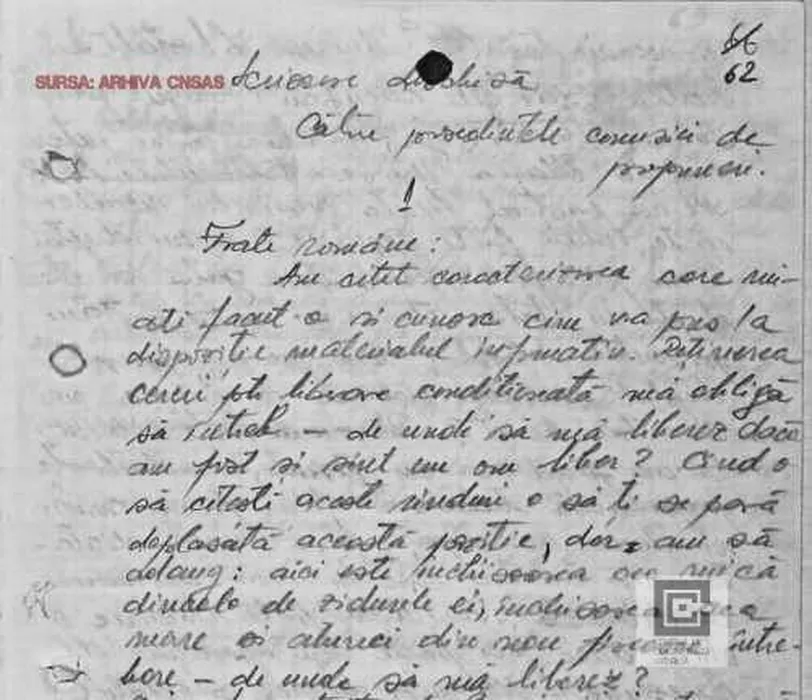 66
62
SURSA: ARHIVA CNSAS
Scrisoare deschisă
Către președintele comisiei de
propuneri.
1
Frate române:
Am citit caracterizarea care mi-
ați facut-o si cunosc cine v-a pus la
dispozitie materialul informativ. Reținerea
cererii ptr liberare conditionată mă obligă
să intreb — de unde să mă liberez dacă
am fost si sînt un om liber? Cind o
să citesti aceste rinduri o să ti se pară
deplasată aceastā pozitie, dar am să
adaug: aici este inchisoarea cea mică
dincolo de zidurile ei, inchisoarea cea
mare si atunci din nou intre-
bare — de unde să mă liberez?